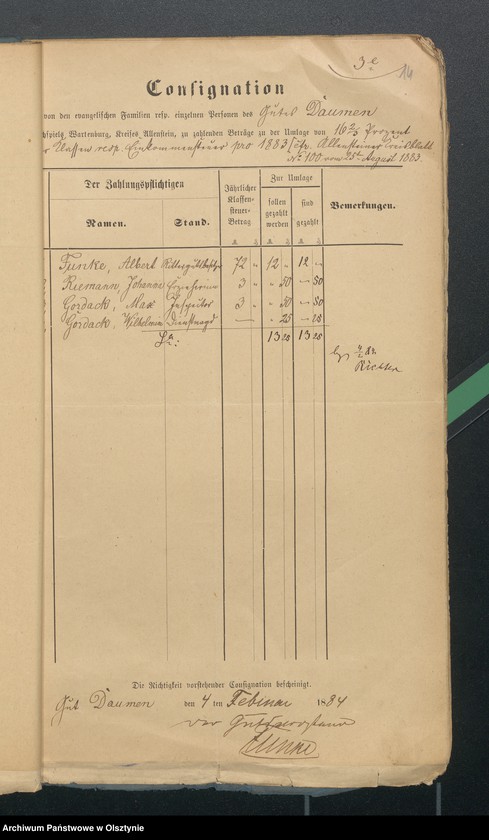 3e
14
Consignation
von den evangelischen Familien resp. einzelnen Personen des Gutes Daumen
hspiels Wartenburg, Kreises Allenstein, zu zahlenden Beträge zu der Umlage von 16 2/3 Prozent
r Klassen resp. Einkommensteuer pro 1883 [cfr. Allensteiner Kreisblatt
No 100 vom 25ten August 1883.
Der Zahlungspflichtigen
Namen. Stand.
Jährlicher Klassensteuer-Betrag
Zur Umlage
sollen gezahlt werden
sind gezahlt
Bemerkungen.
Funke, Albert Rittergutsbesitzer 72 " 12 " 12 "
Riemann, Johanna Erzieherin 3 " — 50 — 50
Gordack, Max Inspektor 3 " — 50 — 50
Gordack, Wilhelmine Dienstmagd — " 25 — 25
Sa: 13 25 13 25
Richter
Die Richtigkeit vorstehender Consignation bescheinigt.
Gut Daumen den 4 ten Februar 1884
Der Gutsvorstand
Funke
Archiwum Państwowe w Olsztynie